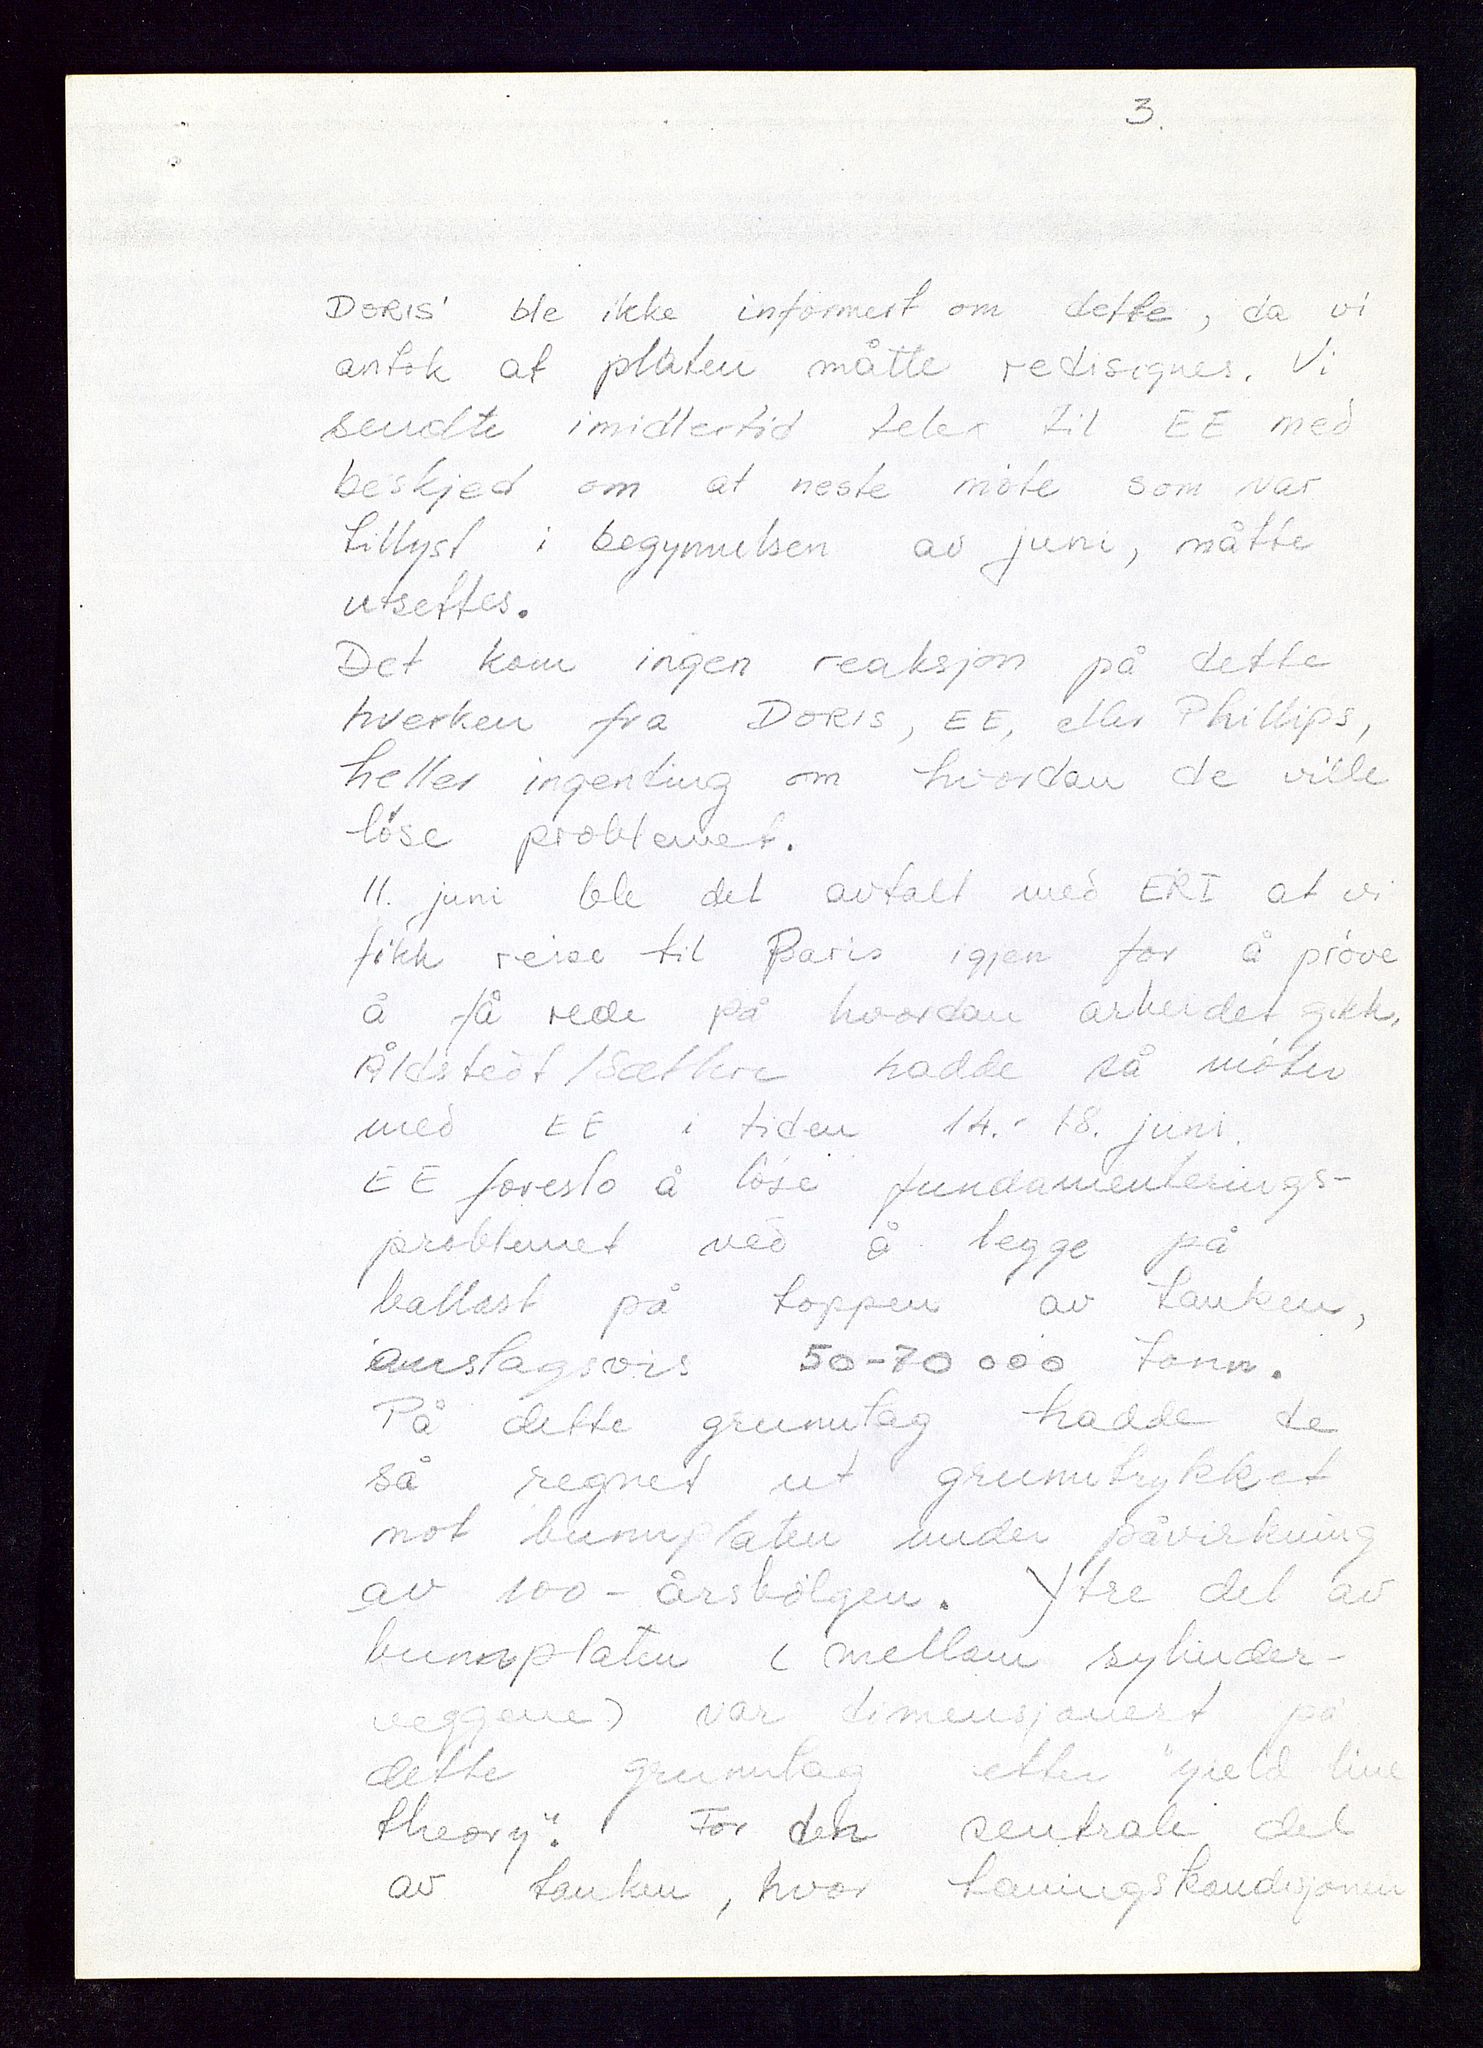 3.
DORIS' ble ikke informert om dette, da vi
antok at platen måtte redisignes. Vi
sendte imidlertid telex til EE med
beskjed om at neste möte som var
tillyst i begynnelsen av juni, måtte
utsettes.
Det kom ingen reaksjon på dette
hverken fra DORIS, EE, eller Phillips,
heller ingenting om hvordan de ville
löse problemet.
11. juni ble det avtalt med ERI at vi
fikk reise til Paris igjen for å pröve
å få rede på hvordan arbeidet gikk.
Åldstedt/Sæthre hadde så möter
med EE i tiden 14.-18. juni.
EE foreslo å löse fundamenterings-
problemet ved å legge på
ballast på toppen av tanken,
anslagsvis 50-70 000 tonn.
På dette grunnlag hadde de
så regnet ut grunntrykket
mot bunnplaten under påvirkning
av 100-årsbölgen. Ytre del av
bunnplaten (mellom sylinder-
veggene) var dimensjonert på
dette grunnlag etter "yield line
theory". For den sentrale del
av tanken, hvor